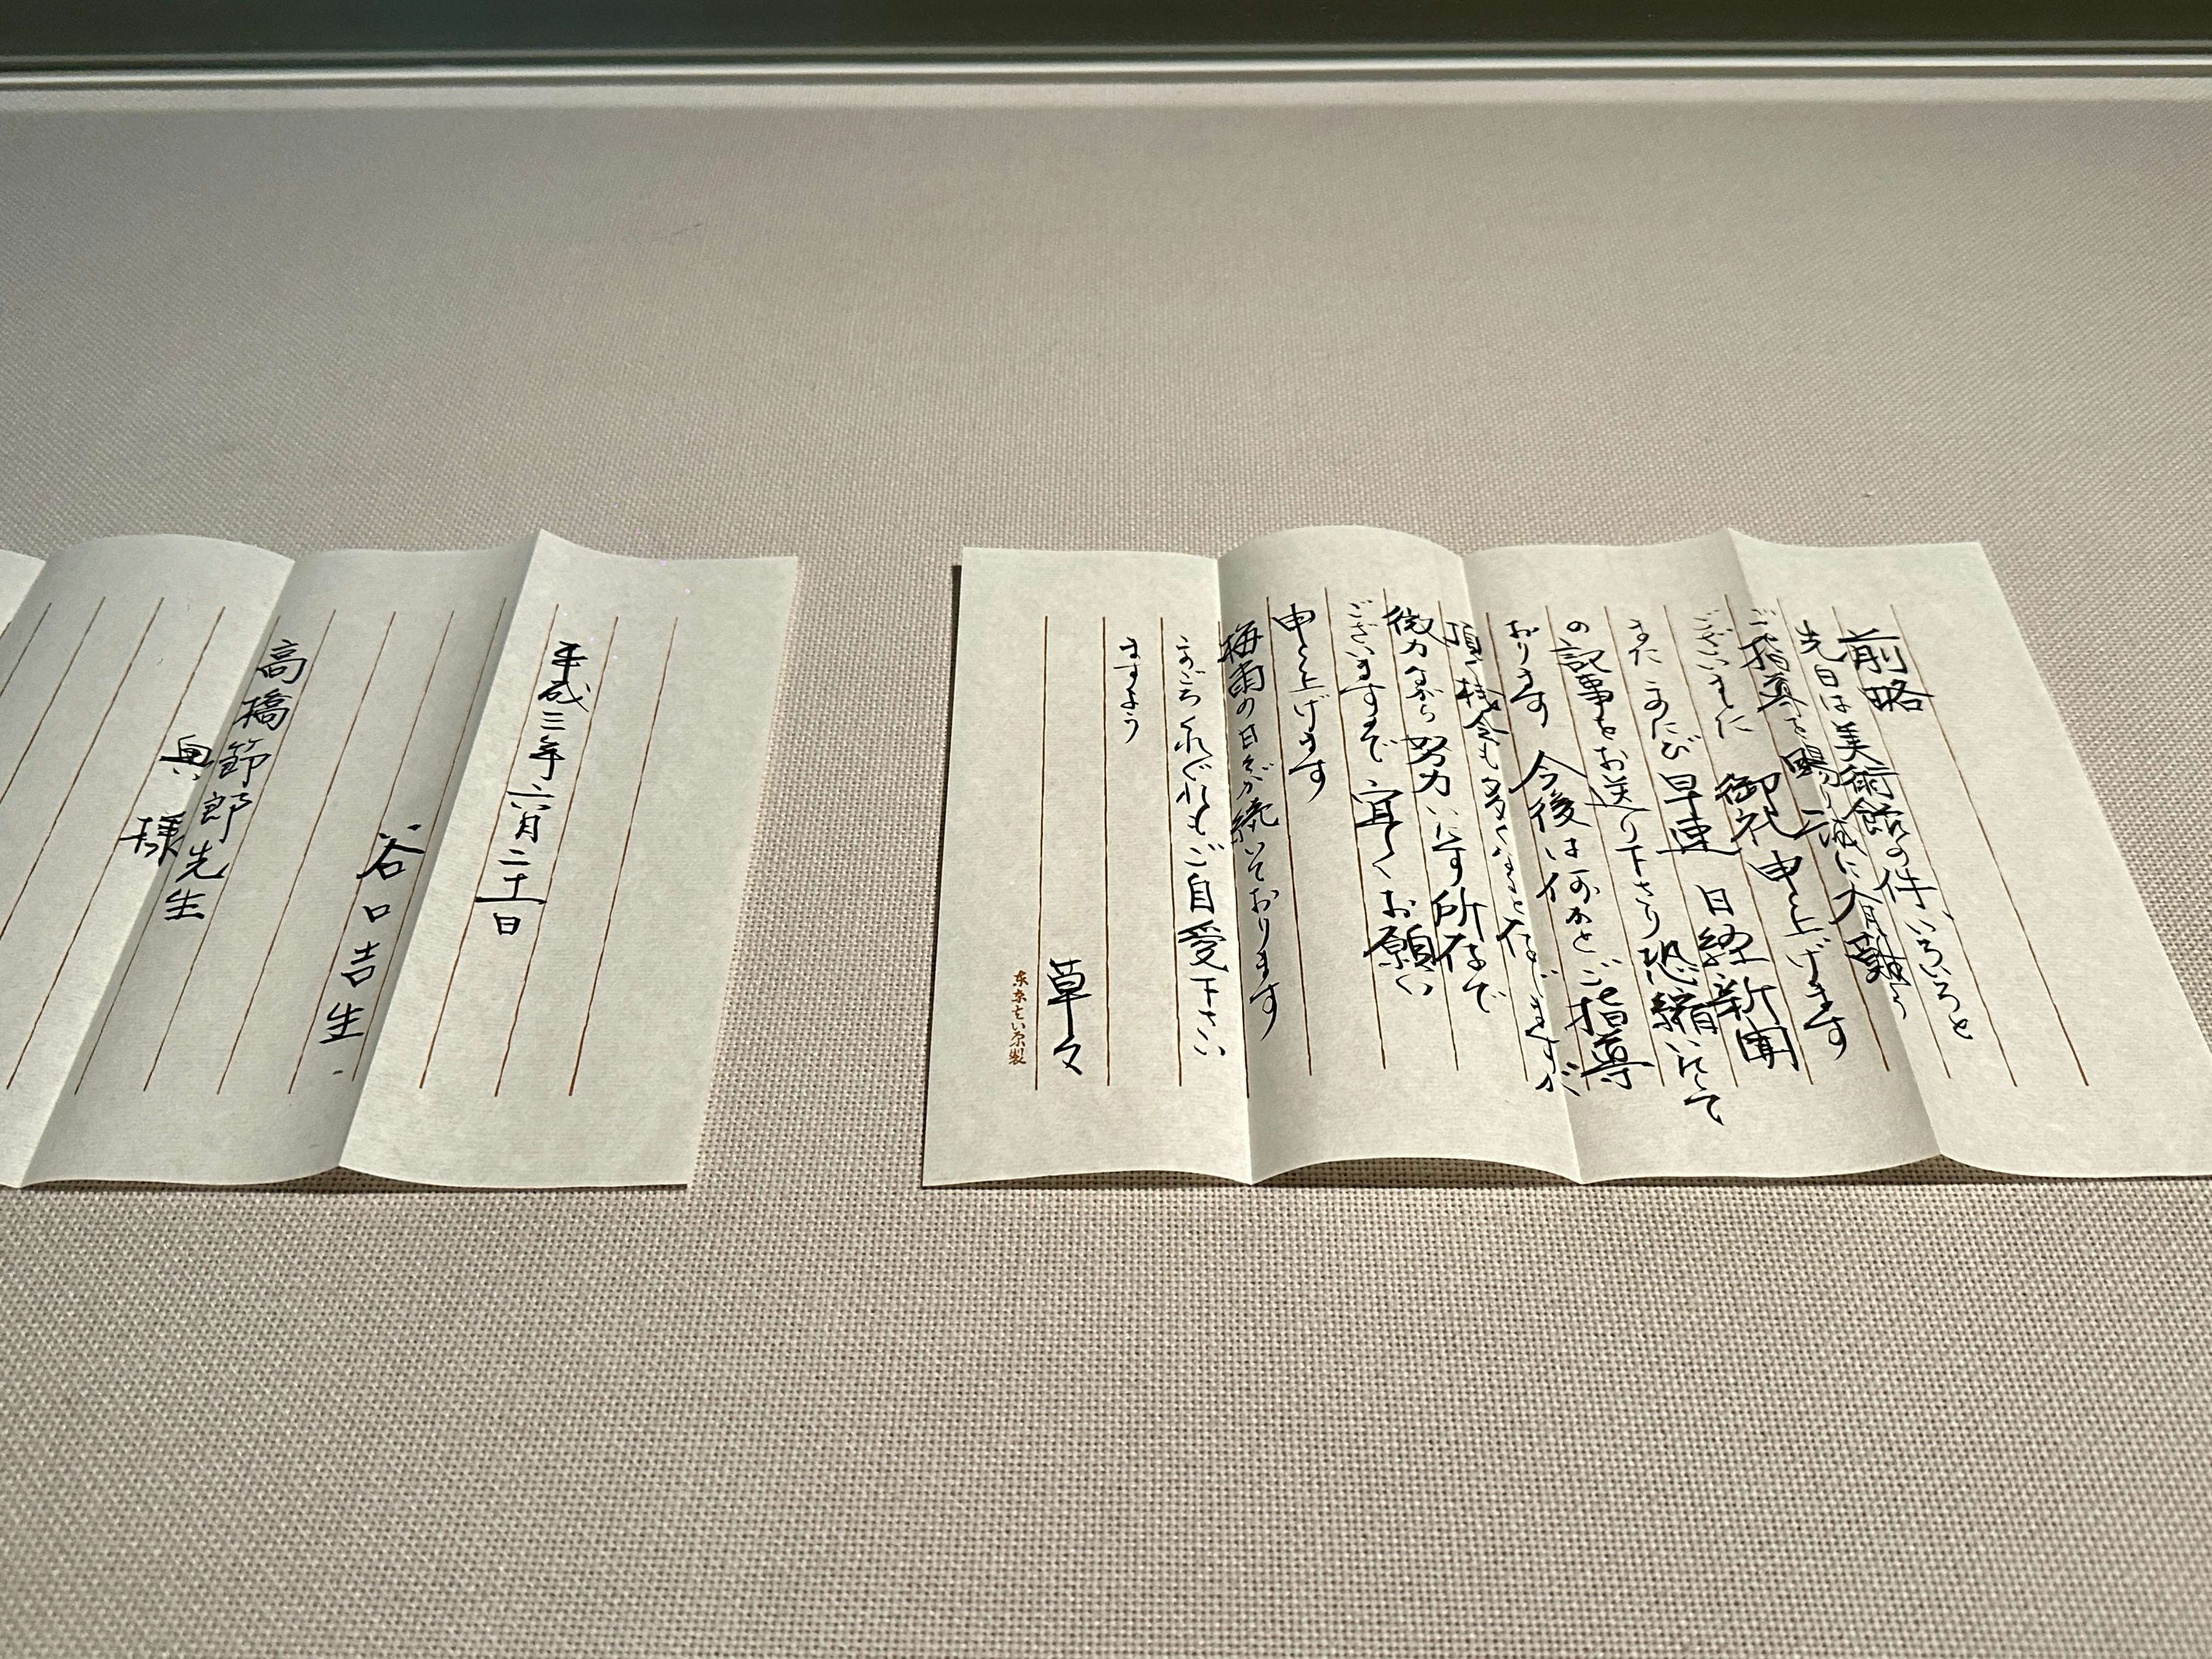 前略
先日は美術館の件、いろいろと
ご指導を賜り 誠に有難う
ございました 御礼申し上げます
またこのたび早速 日経新聞
の記事をお送り下さり恐縮いたして
おります 今後は何かとご指導
頂く機会も多くなると存じますが
微力ながら努力いたす所存で
ございますので 宜しくお願い
申し上げます
梅雨の日々が続いております
くれぐれもご自愛下さい
ますよう
草々
平成三年六月二十一日
谷口吉生
高橋節郎先生
奥様